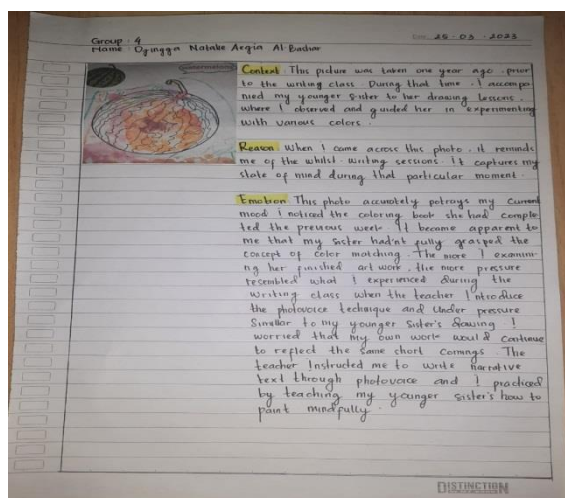 Group : 4
Date 25 - 03 - 2023
Name : Oyingga Natake Aegia Al-Bashar
Context This picture was taken one year ago . prior
to the writing class . During that time . I accompa
nied my younger Sister to her drawing lessons .
where I observed and guided her in experimenting
with various colors .
Reason When I came across this photo . it reminds
me of the whilst . writing sessions . It captures my
state of mind during that particular moment .
Emotion This photo accurately potrays my Current
mood I noticed the coloring book she had comple
ted the previous week . It became apparent to
me that my sister hadn't fully grasped the
concept of color matching . The more I examini
ng her finished art work , the more pressure
resembled what I experienced during the
writing class when the teacher Introduce
the photovoice technique and Under pressure
Simillar to my younger Sister's drawing . I
worried that my own work would continue
to reflect the same short comings . The
teacher Instructed me to write narrative
text through photovoice and I practiced
by teaching my younger sister's how to
paint mindfully .
DISTINCTION